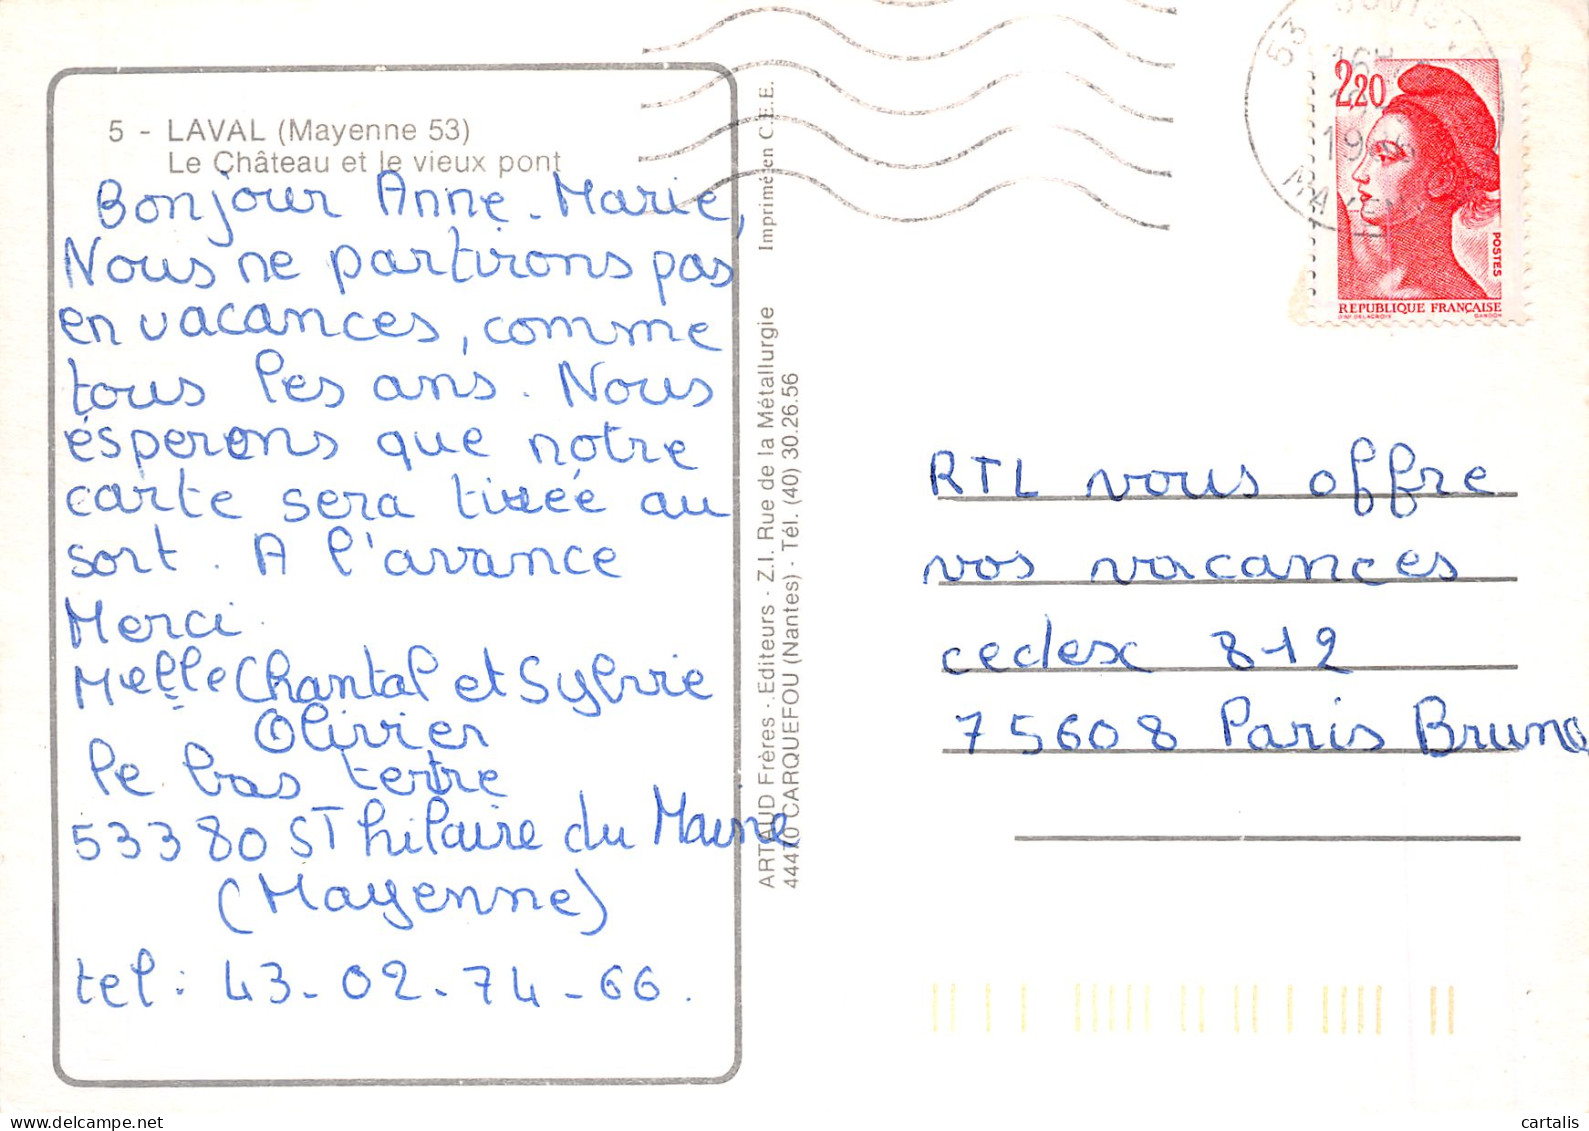 5 - LAVAL (Mayenne 53)
Le Château et le vieux pont
Bonjour Anne-Marie,
Nous ne partirons pas
en vacances, comme
tous les ans. Nous
ésperons que notre
carte sera tirée au
sort. A l'avance
Merci.
Melle Chantal et Sylvie
Olivier
le bas tertre
53380 ST hilaire du Maine
(Mayenne)
tel : 43-02-74-66.
Imprimé en C.E.E.
ARTAUD Frères - Editeurs - Z.I. Rue de la Métallurgie
44470 CARQUEFOU (Nantes) - Tél. (40) 30.26.56
53
16H
19
MAYENNE
2,20
POSTES
REPUBLIQUE FRANÇAISE
GANDON
RTL vous offre
vos vacances
cedex 812
75608 Paris Brune
delcampe.net
cartalis